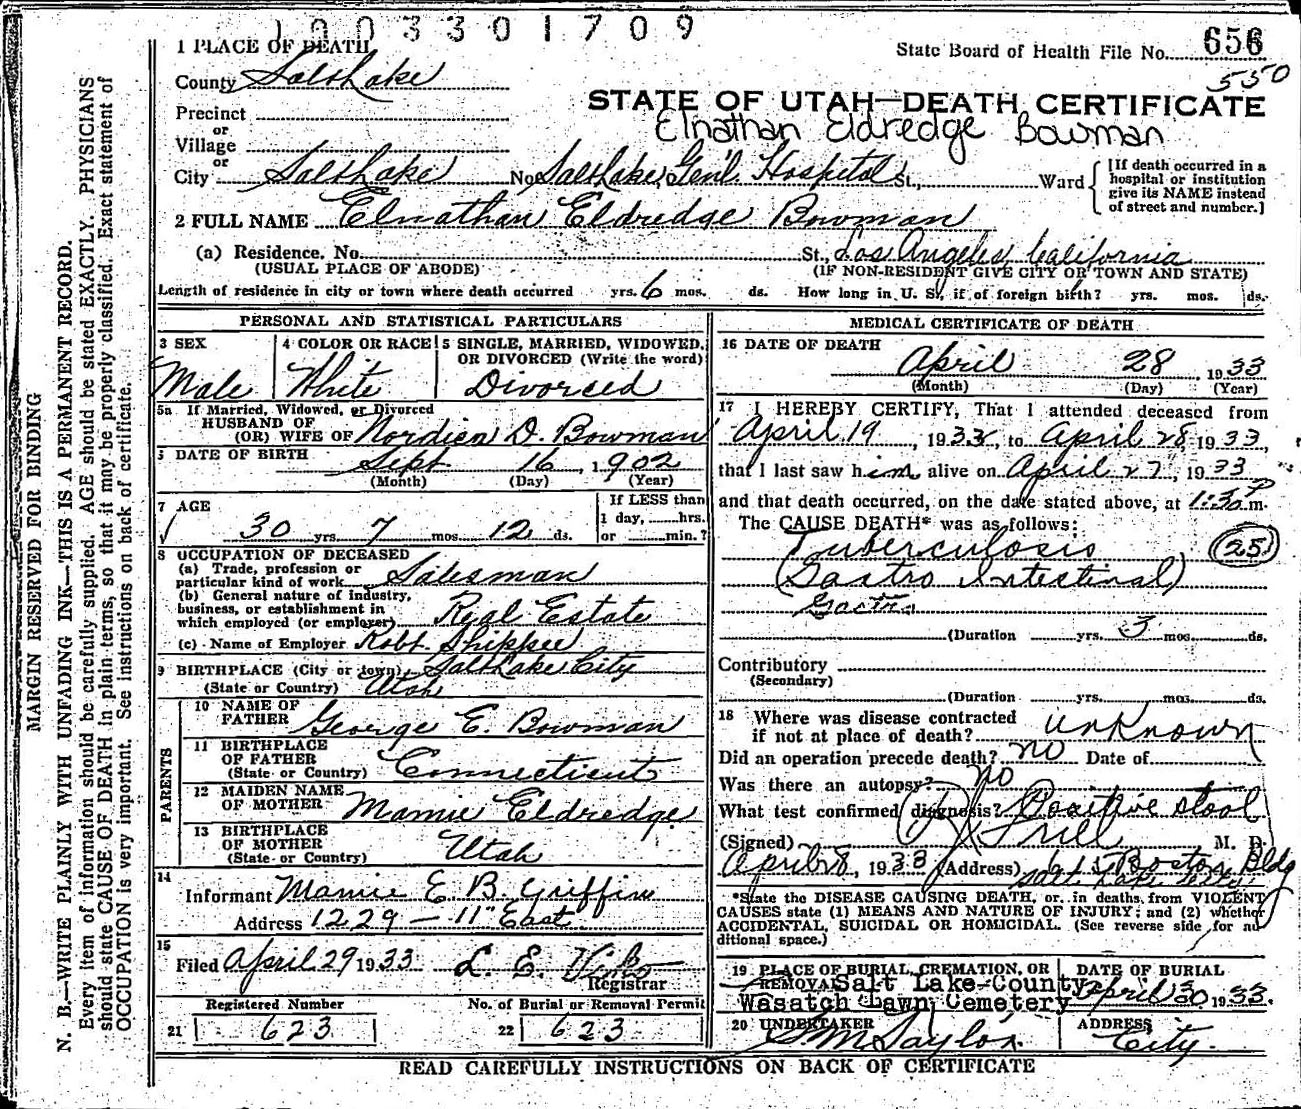 1003301709
1 PLACE OF DEATH
State Board of Health File No. 656
County Salt Lake
550
STATE OF UTAH—DEATH CERTIFICATE
Precinct
Elnathan Eldredge Bowman
or
Village
or
City Salt Lake No. Salt Lake Gen'l. Hospital St., Ward
[If death occurred in a hospital or institution give its NAME instead of street and number.]
2 FULL NAME Elnathan Eldredge Bowman
(a) Residence. No. St., Los Angeles California
(USUAL PLACE OF ABODE) (IF NON-RESIDENT GIVE CITY OR TOWN AND STATE)
Length of residence in city or town where death occurred yrs. 6 mos. ds. How long in U. S., if of foreign birth? yrs. mos. ds.
PERSONAL AND STATISTICAL PARTICULARS
3 SEX
Male
4 COLOR OR RACE
White
5 SINGLE, MARRIED, WIDOWED,
OR DIVORCED (Write the word)
Divorced
5a If Married, Widowed, or Divorced
HUSBAND OF
(OR) WIFE OF D. Bowman
DATE OF BIRTH
Sept 16, 1902
(Month) (Day) (Year)
7 AGE
30 yrs. 7 mos. 12 ds.
If LESS than
1 day, hrs.
or min.?
8 OCCUPATION OF DECEASED
(a) Trade, profession or
particular kind of work Salesman
(b) General nature of industry,
business, or establishment in
which employed (or employer) Real Estate
(c) Name of Employer Robt. Shippee
9 BIRTHPLACE (City or town) Salt Lake City
(State or Country) Utah
PARENTS
10 NAME OF
FATHER George E. Bowman
11 BIRTHPLACE
OF FATHER
(State or Country) Connecticut
12 MAIDEN NAME
OF MOTHER Mamie Eldredge
13 BIRTHPLACE
OF MOTHER
(State or Country) Utah
14
Informant Mamie E. B. Griffin
Address 1229 – 11" East
15
Filed April 29 1933 L. E.
Registrar
Registered Number
21 623
No. of Burial or Removal Permit
22 623
MEDICAL CERTIFICATE OF DEATH
16 DATE OF DEATH
April 28, 1933
(Month) (Day) (Year)
17 I HEREBY CERTIFY, That I attended deceased from
April 19, 1933, to April 28, 1933,
that I last saw him alive on April 27, 1933
and that death occurred, on the date stated above, at 1:30 P m.
The CAUSE DEATH* was as follows:
Tuberculosis (25)
(Gastro Intestinal)
Gastro
(Duration yrs. 3 mos. ds.
Contributory
(Secondary)
(Duration yrs. mos. ds.
18 Where was disease contracted
if not at place of death? unknown
Did an operation precede death? no Date of
Was there an autopsy? no
What test confirmed diagnosis? Positive stool
(Signed) M. D.
April 28, 1933 (Address) Boston Bldg
Salt Lake City
*State the DISEASE CAUSING DEATH, or, in deaths from VIOLENT
CAUSES state (1) MEANS AND NATURE OF INJURY; and (2) whether
ACCIDENTAL, SUICIDAL OR HOMICIDAL. (See reverse side for ad
ditional space.)
19 PLACE OF BURIAL, CREMATION, OR
REMOVAL Salt Lake County
Wasatch Lawn Cemetery
DATE OF BURIAL
April 30 1933.
20 UNDERTAKER
S M Taylor
ADDRESS
City.
READ CAREFULLY INSTRUCTIONS ON BACK OF CERTIFICATE
MARGIN RESERVED FOR BINDING
N. B.—WRITE PLAINLY WITH UNFADING INK—THIS IS A PERMANENT RECORD.
Every item of information should be carefully supplied. AGE should be stated EXACTLY. PHYSICIANS
should state CAUSE OF DEATH in plain terms, so that it may be properly classified. Exact statement of
OCCUPATION is very important. See instructions on back of certificate.